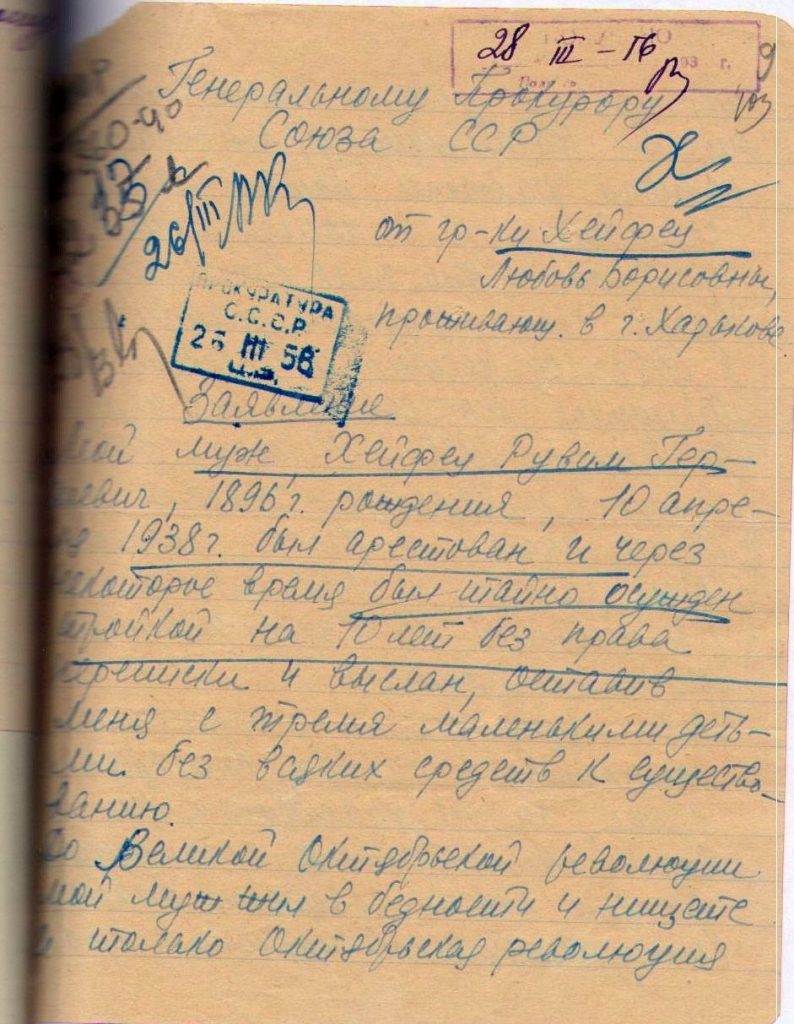 28 III - 56
9
Генеральному Прокурору
Союза ССР
26/III
от гр-ки Хейфец
Любовь Борисовны,
проживающ. в г. Харькове
ПРОКУРАТУРА
С.С.С.Р.
26 III 56
Заявление
Мой муж, Хейфец Рувим Гер-
евич, 1896 г. рождения, 10 апре-
ля 1938 г. был арестован и через
некоторое время был тайно осужден
тройкой на 10 лет без права
переписки и выслан, оставив
меня с тремя маленькими деть-
ми без всяких средств к существо-
ванию.
До Великой Октябрьской революции
мой муж жил в бедности и нищете
и только Октябрьская революция